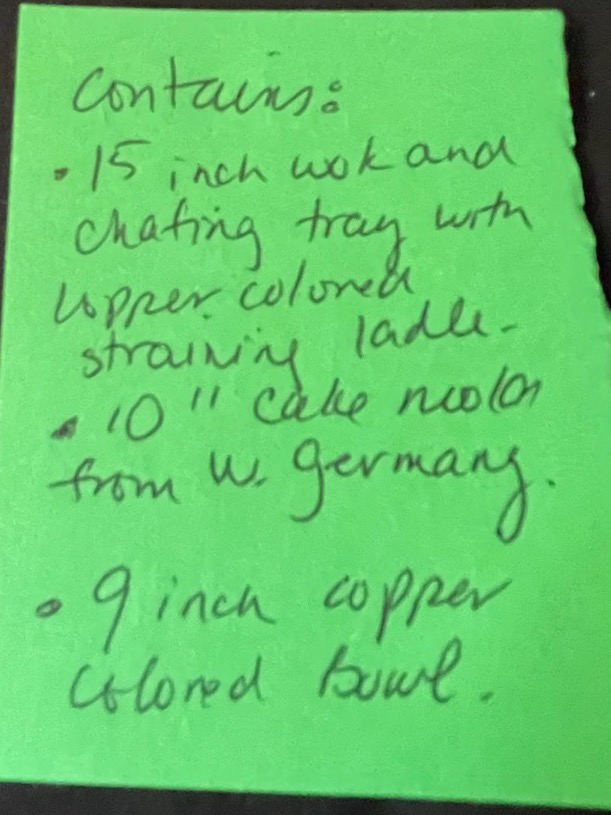 Contains:
• 15 inch wok and
chafing tray with
copper colored
straining ladle.
• 10" cake
from W. Germany.
• 9 inch copper
colored bowl.